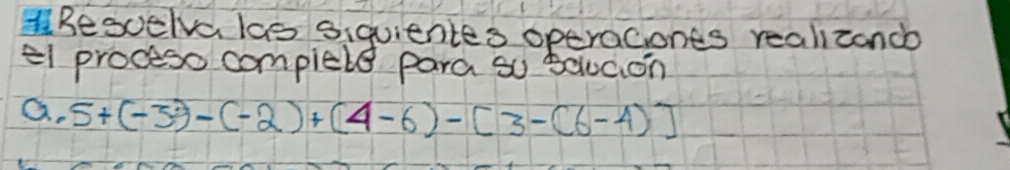 1 Resuelva las siguientes operaciones realizando
el proceso completo para su solución
a. 5+(-3)-(-2)+(4-6)-[3-(6-4)]